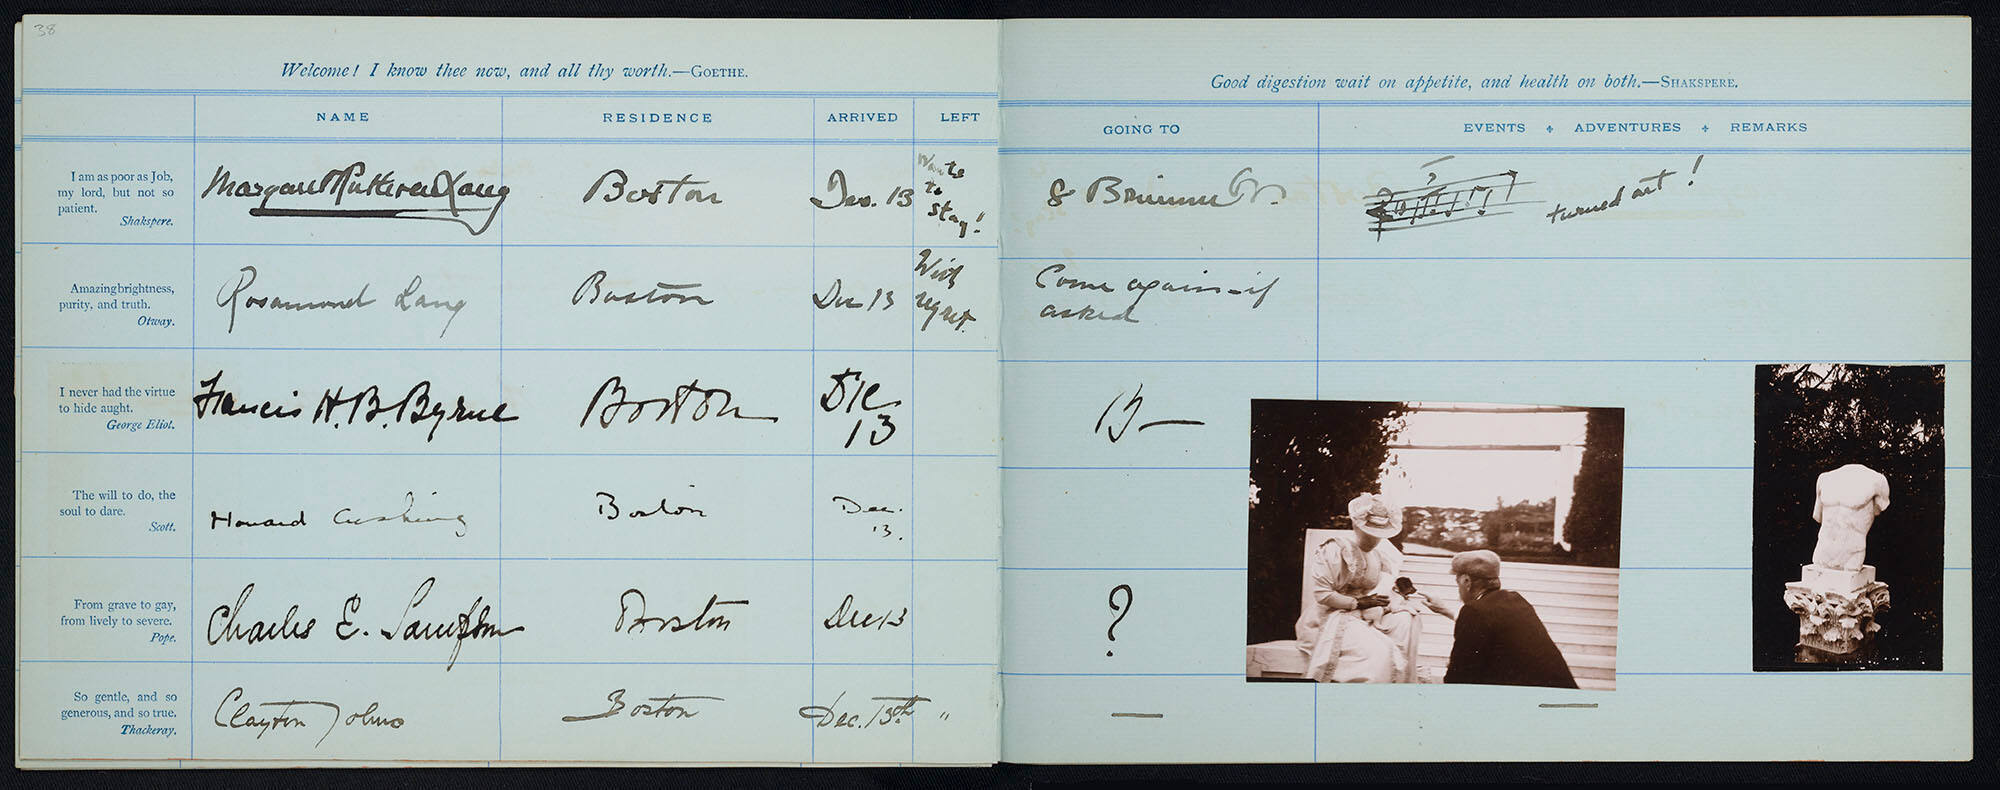 38
Welcome! I know thee now, and all thy worth.—GOETHE.
NAME RESIDENCE ARRIVED LEFT
I am as poor as Job,
my lord, but not so
patient.
Shakspere.
Margaret Ruthven Lang Boston Dec. 13 Wants to stay!
Amazing brightness,
purity, and truth.
Otway.
Rosamond Lang Boston Dec 13 With regret.
I never had the virtue
to hide aught.
George Eliot.
Francis H. B. Byrne Boston Dec 13
The will to do, the
soul to dare.
Scott.
Howard Cushing Boston Dec. 13.
From grave to gay,
from lively to severe.
Pope.
Charles E. Sampson Boston Dec 13
So gentle, and so
generous, and so true.
Thackeray.
Clayton Johns Boston Dec. 13th "
Good digestion wait on appetite, and health on both.—SHAKSPERE.
GOING TO EVENTS ADVENTURES REMARKS
8 Brimmer turned out!
Come again - if
asked
?